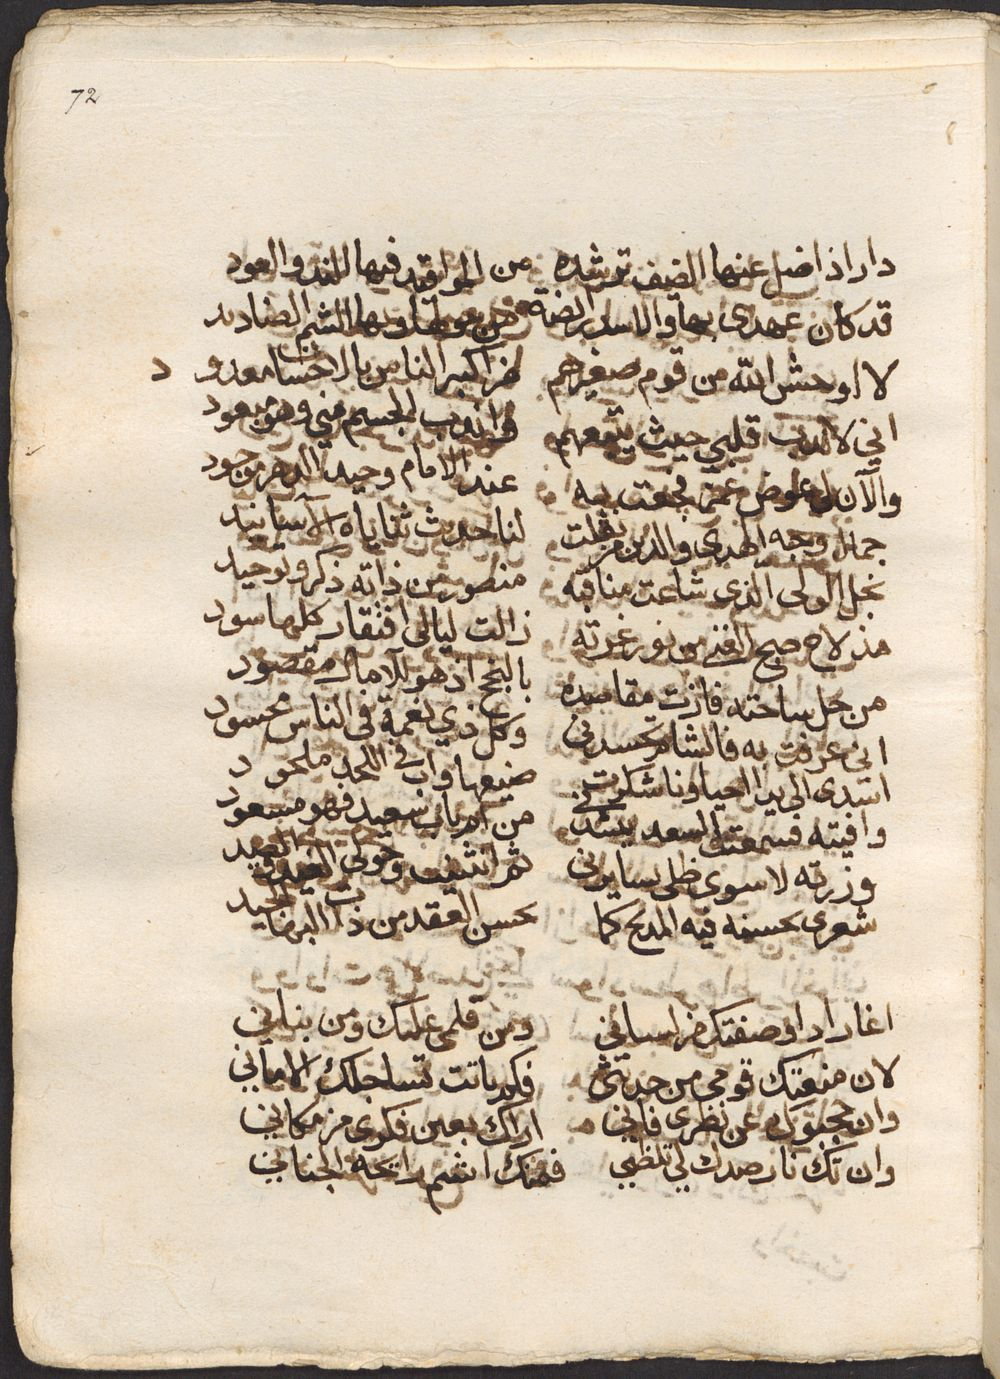 72
دار اذا ضل عنها الضيف ترشده من المواقد فيها الند والعود
قد كان عهدى بها والاسد رابضة من حولها وبها الشم الصناديد
لا اوحش الله من قوم صغيرهم اكبر الناس بالاحسان معدود
اني لاندب قلبي حيث يتبعهم واندب الجسم مني وهو مبعود
والآن لي عوض عمن فجعت به عند الامام وحيد الدهر موجود
جمال وجه الهدى والدين من نقلت لنا حديث ثناياه الاسانيد
نجل الولى الذى شاعت مناقبه منطور من ذاته ذكر وتوحيد
مذ لاح صبح الغنى من نور غرته زالت ليالى افتقار كلها سود
من حل ساحته فازت مقاصده بالنجح اذ هو للآمال مقصود
انى عرفت به فالشام تحسدنى وكل ذي نعمة فى الناس محسود
اسدى الى يدا احيا وانا شكرت صنيعها واب فى اللحد ملحود
وافيته فسمعت السعد ينشدنى من ام باب سعيد فهو مسعود
وزرته لا سوى ظلى يسايرنى ثم انثنيت وحولى العبيد
شعرى بحسنه فيه المدح كما بحسن العقد من ذات البها الجيد
اغار اذا وصفتك من لسانى ومن قلمى عليك ومن بنانى
لان منعتك قومى من حديثى فكم باتت تساجلك الامانى
وان حجبوك عن نظرى فانى اراك بعين فكرى من مكانى
وان تك نار صدك لى تلظى فمنك اشم رائحة الجنانى